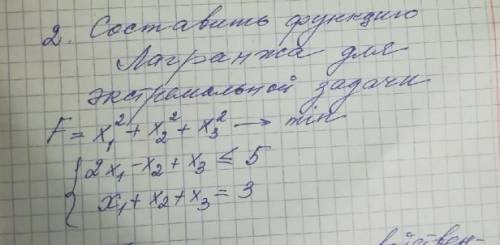 2. Составить функцию
Лагранжа для
экстремальной задачи
F = x₁² + x₂² + x₃² → min
{ 2x₁ - x₂ + x₃ ≤ 5
x₁ + x₂ + x₃ = 3